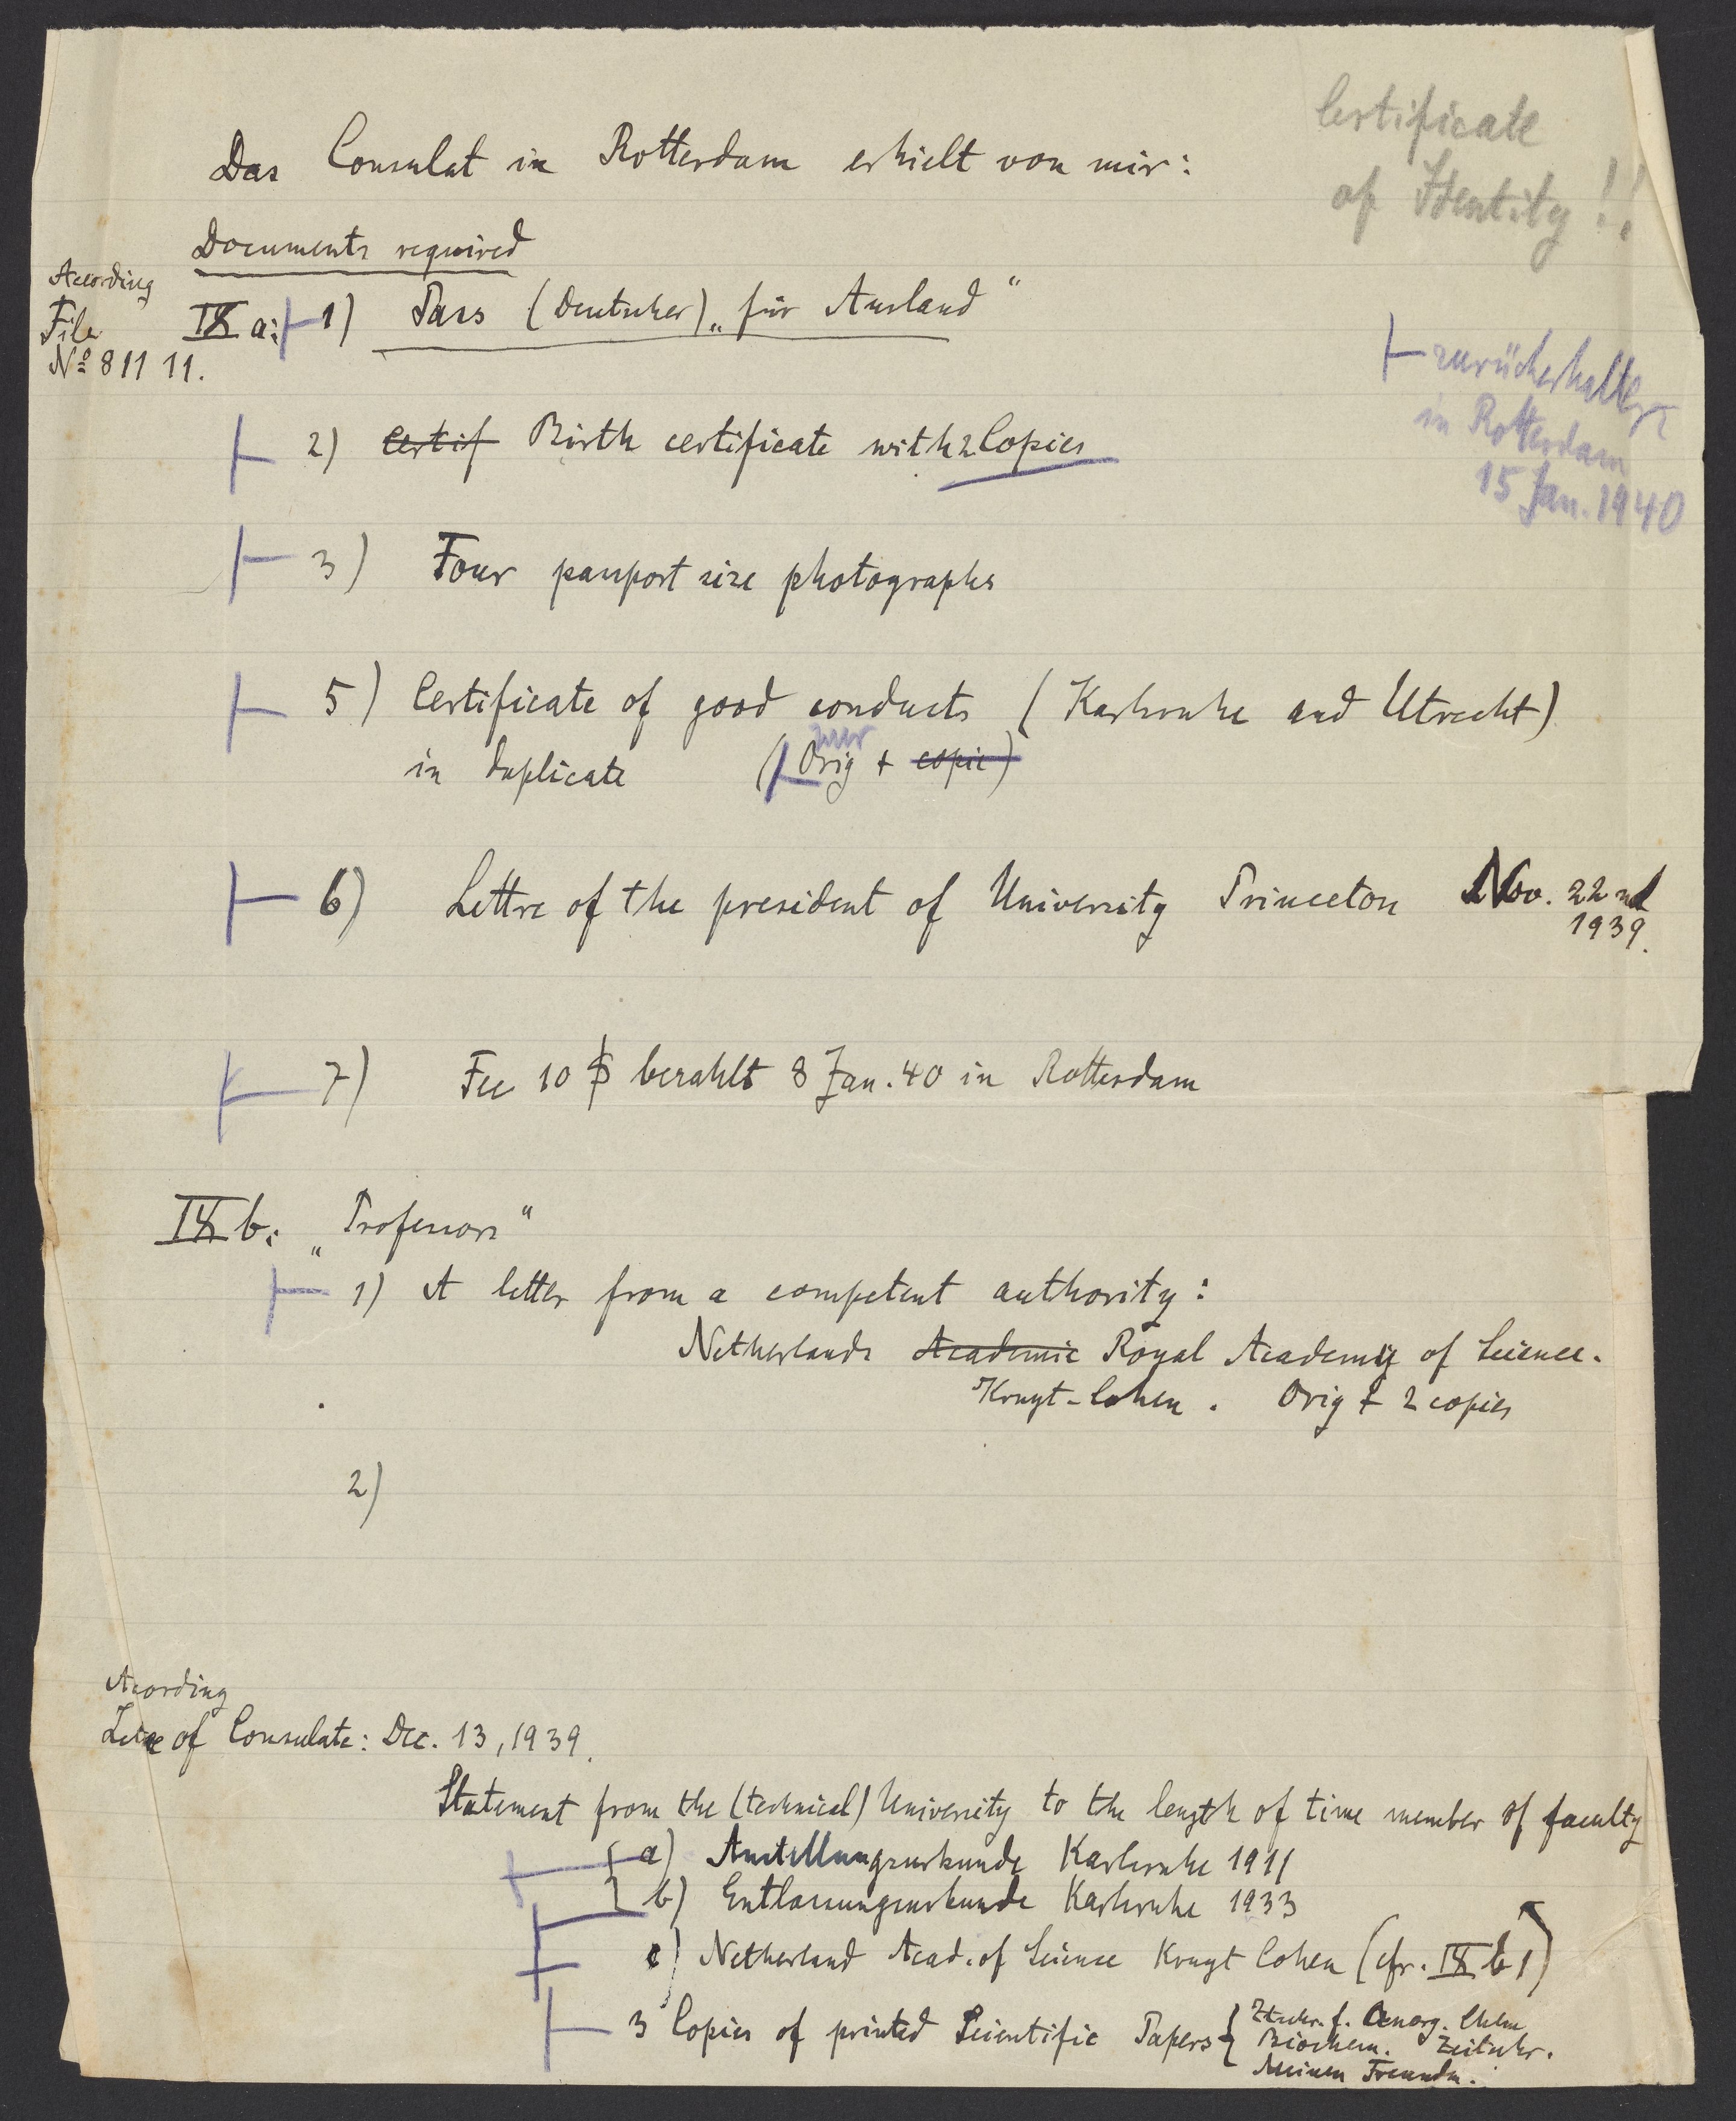 Certificate
of Identity!!
Das Consulat in Rotterdam erhielt von mir:
Documents required
Acording
File
Nº 811 11.
IX a: 1) Pass (Deutscher) „für Ausland“
zurückerhalten
in Rotterdam
15 Jan. 1940
2) Certif Birth certificate with 2 Copies
3) Four passport size photographs
5) Certificate of good conducts (Karlsruhe and Utrecht)
in duplicate (Orig + copie)
6) Lettre of the president of University Princeton Nov. 22nd
1939.
7) Fee 10 $ bezahlt 8 Jan. 40 in Rotterdam
IX b: „Professors“
1) A letter from a competent authority:
Netherlands Academie Royal Academy of Science.
Kruyt-Cohen. Orig + 2 copies
2)
Acording
of Consulate: Dec. 13, 1939.
Statement from the (technical) University to the length of time member of faculty
a) Anstellungsurkunde Karlsruhe 1911
b) Entlassungsurkunde Karlsruhe 1933
c) Netherland Acad. of Science Kruyt Cohen (cfr. IX b 1)
3 Copies of printed Scientific Papers { Ztschr. f. Anorg. Chem
Biochem. Zeitschr.
Meinen Freunden.